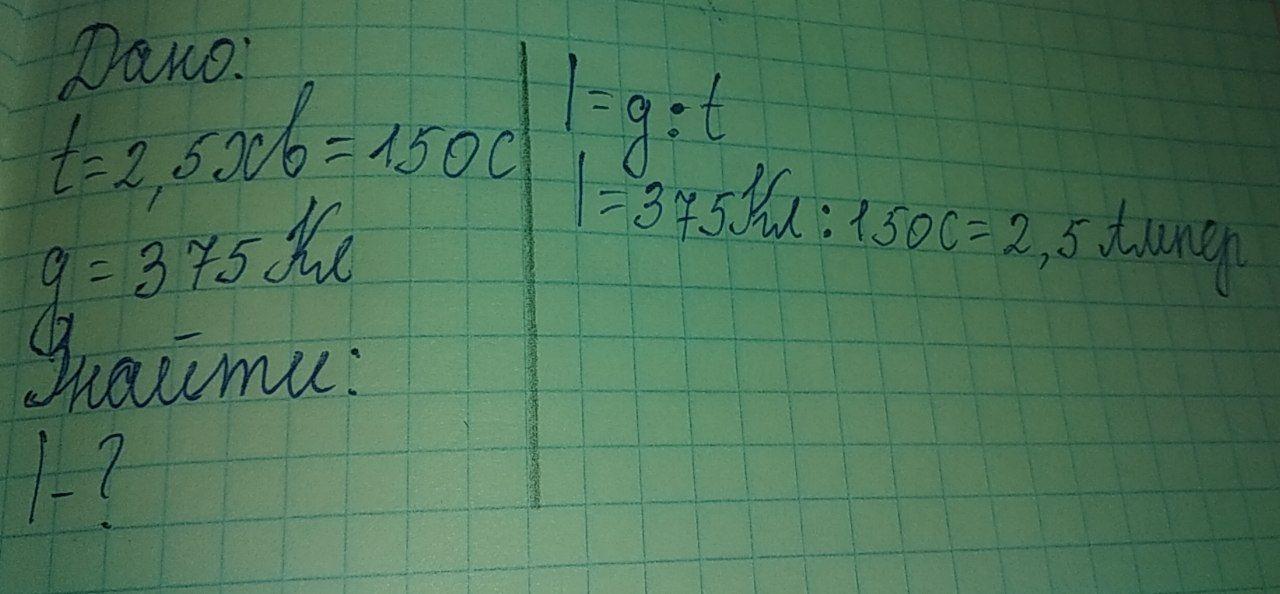 Дано:
t=2,5хв=150с
g=375Кл
Знайти:
I-?
I=g:t
I=375Кл:150с=2,5Ампер